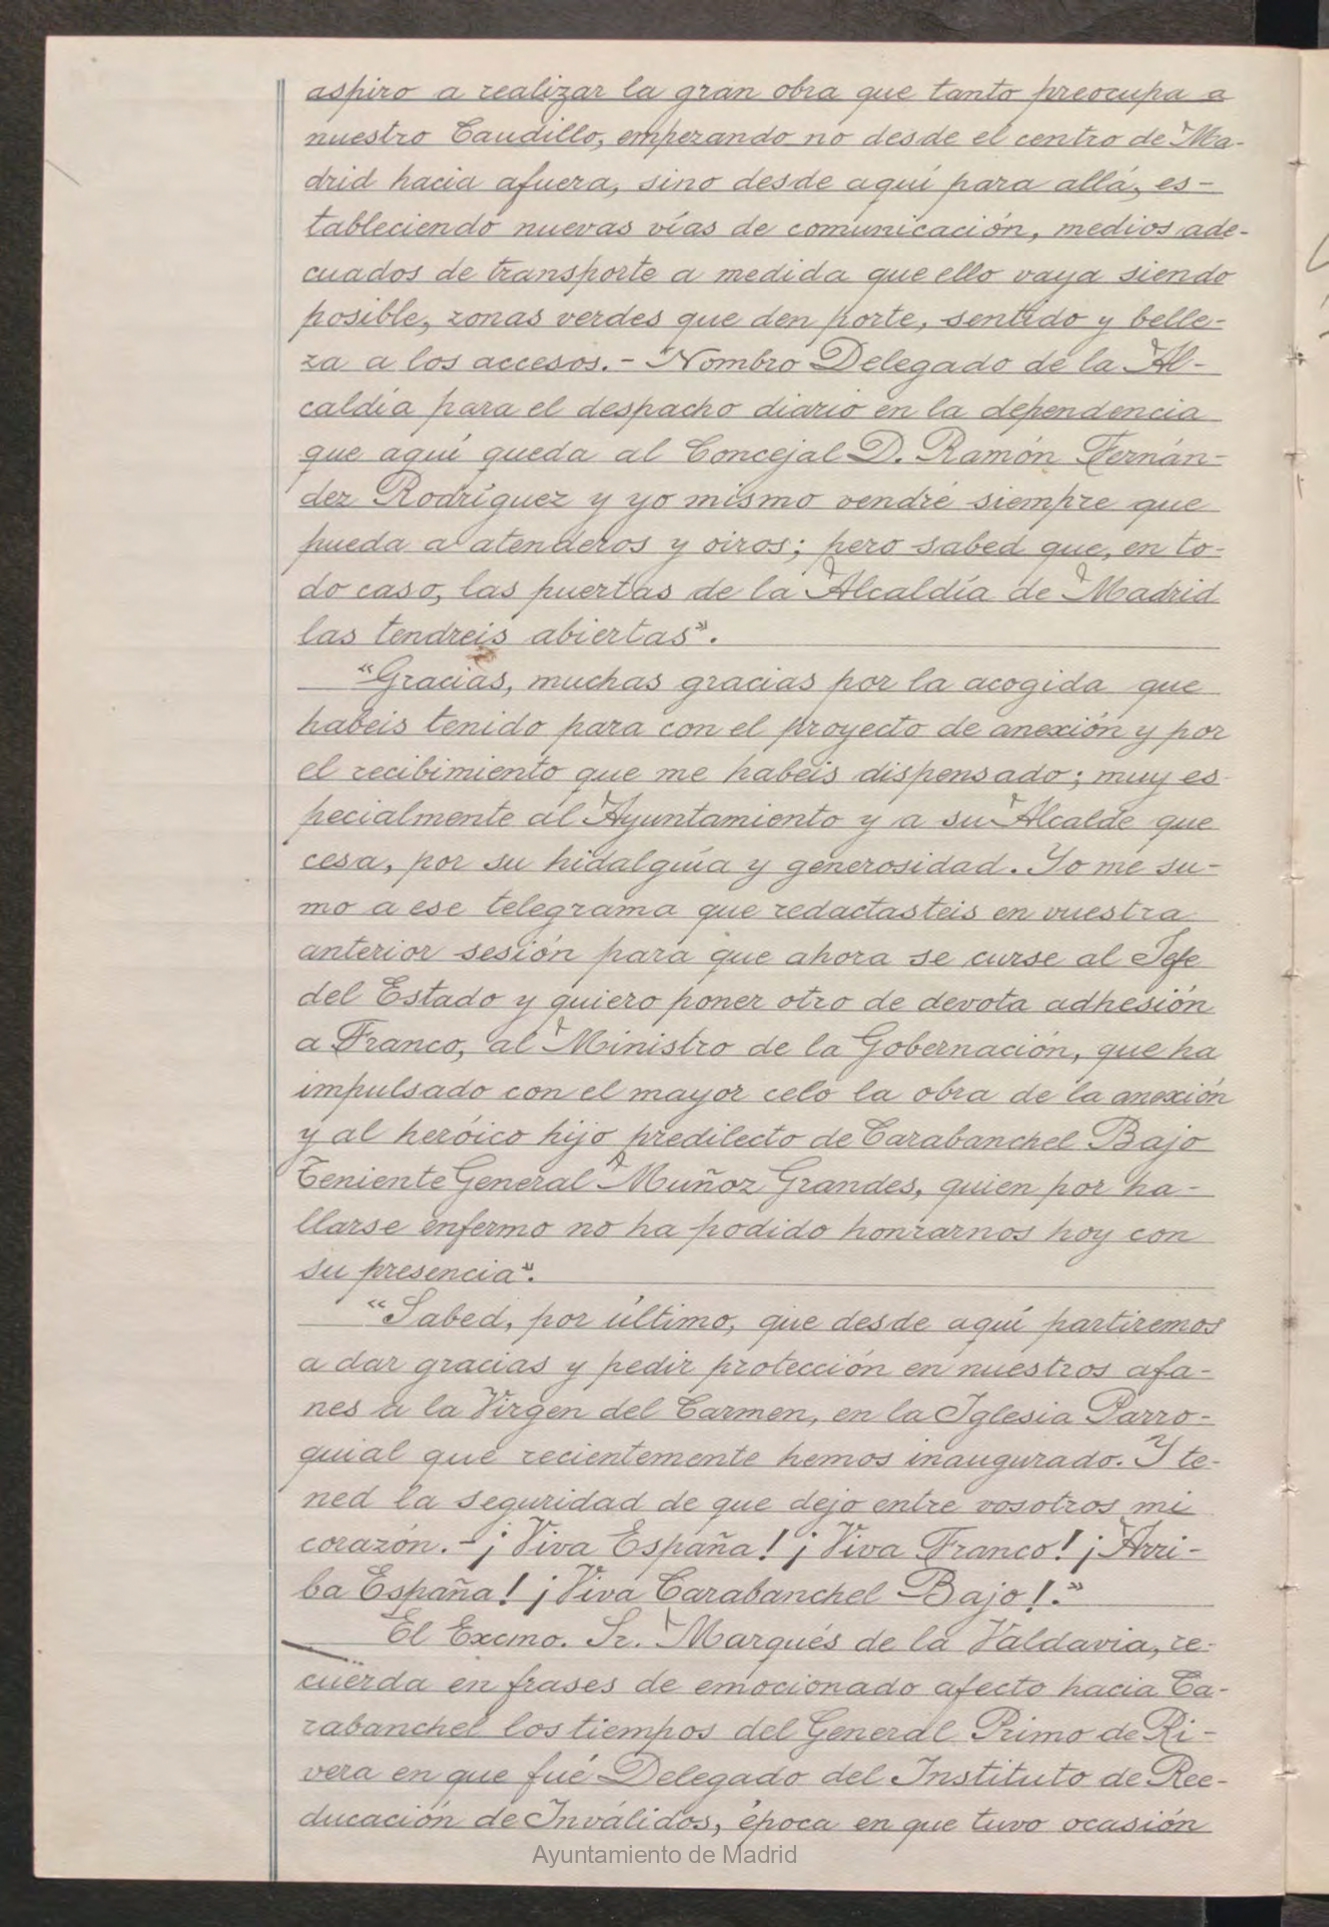 aspiro a realizar la gran obra que tanto preocupa a
nuestro Caudillo, empezando no desde el centro de Ma-
drid hacia afuera, sino desde aquí para allá, es-
tableciendo nuevas vías de comunicación, medios ade-
cuados de transporte a medida que ello vaya siendo
posible, zonas verdes que den porte, sentido y belle-
za a los accesos.- Nombro Delegado de la Al-
caldía para el despacho diario en la dependencia
que aquí queda al Concejal D. Ramón Fernán-
dez Rodríguez y yo mismo vendré siempre que
pueda a atenderos y oiros; pero sabed que, en to-
do caso, las puertas de la Alcaldía de Madrid
las tendreis abiertas".
"Gracias, muchas gracias por la acogida que
habeis tenido para con el proyecto de anexión y por
el recibimiento que me habeis dispensado; muy es-
pecialmente al Ayuntamiento y a su Alcalde que
cesa, por su hidalguía y generosidad. Yo me su-
mo a ese telegrama que redactasteis en vuestra
anterior sesión para que ahora se curse al Jefe
del Estado y quiero poner otro de devota adhesión
a Franco, al Ministro de la Gobernación, que ha
impulsado con el mayor celo la obra de la anexión
y al heróico hijo predilecto de Carabanchel Bajo
Teniente General Muñoz Grandes, quien por ha-
llarse enfermo no ha podido honrarnos hoy con
su presencia".
"Sabed, por último, que desde aquí partiremos
a dar gracias y pedir protección en nuestros afa-
nes a la Virgen del Carmen, en la Iglesia Parro-
quial que recientemente hemos inaugurado. Y te-
ned la seguridad de que dejo entre vosotros mi
corazón.- ¡Viva España! ¡Viva Franco! ¡Arri-
ba España! ¡Viva Carabanchel Bajo!."
El Excmo. Sr. Marqués de la Valdavia, re-
cuerda en frases de emocionado afecto hacia Ca-
rabanchel los tiempos del General Primo de Ri-
vera en que fué Delegado del Instituto de Ree-
ducación de Inválidos, época en que tuvo ocasión
Ayuntamiento de Madrid